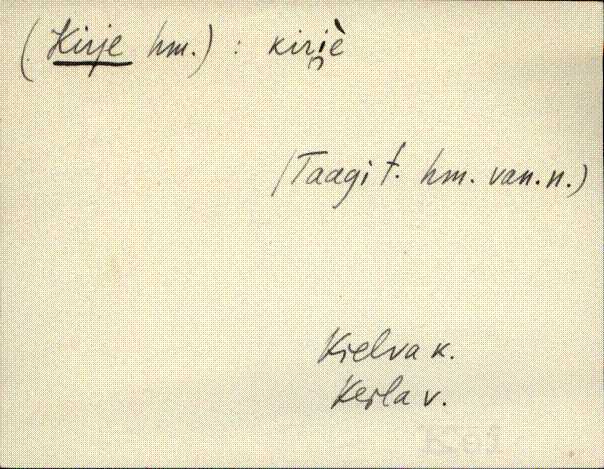 (Kirje hm.) : kiri̯è
(Taagi t. hm. van. n.)
Kielva k.
Keila v.